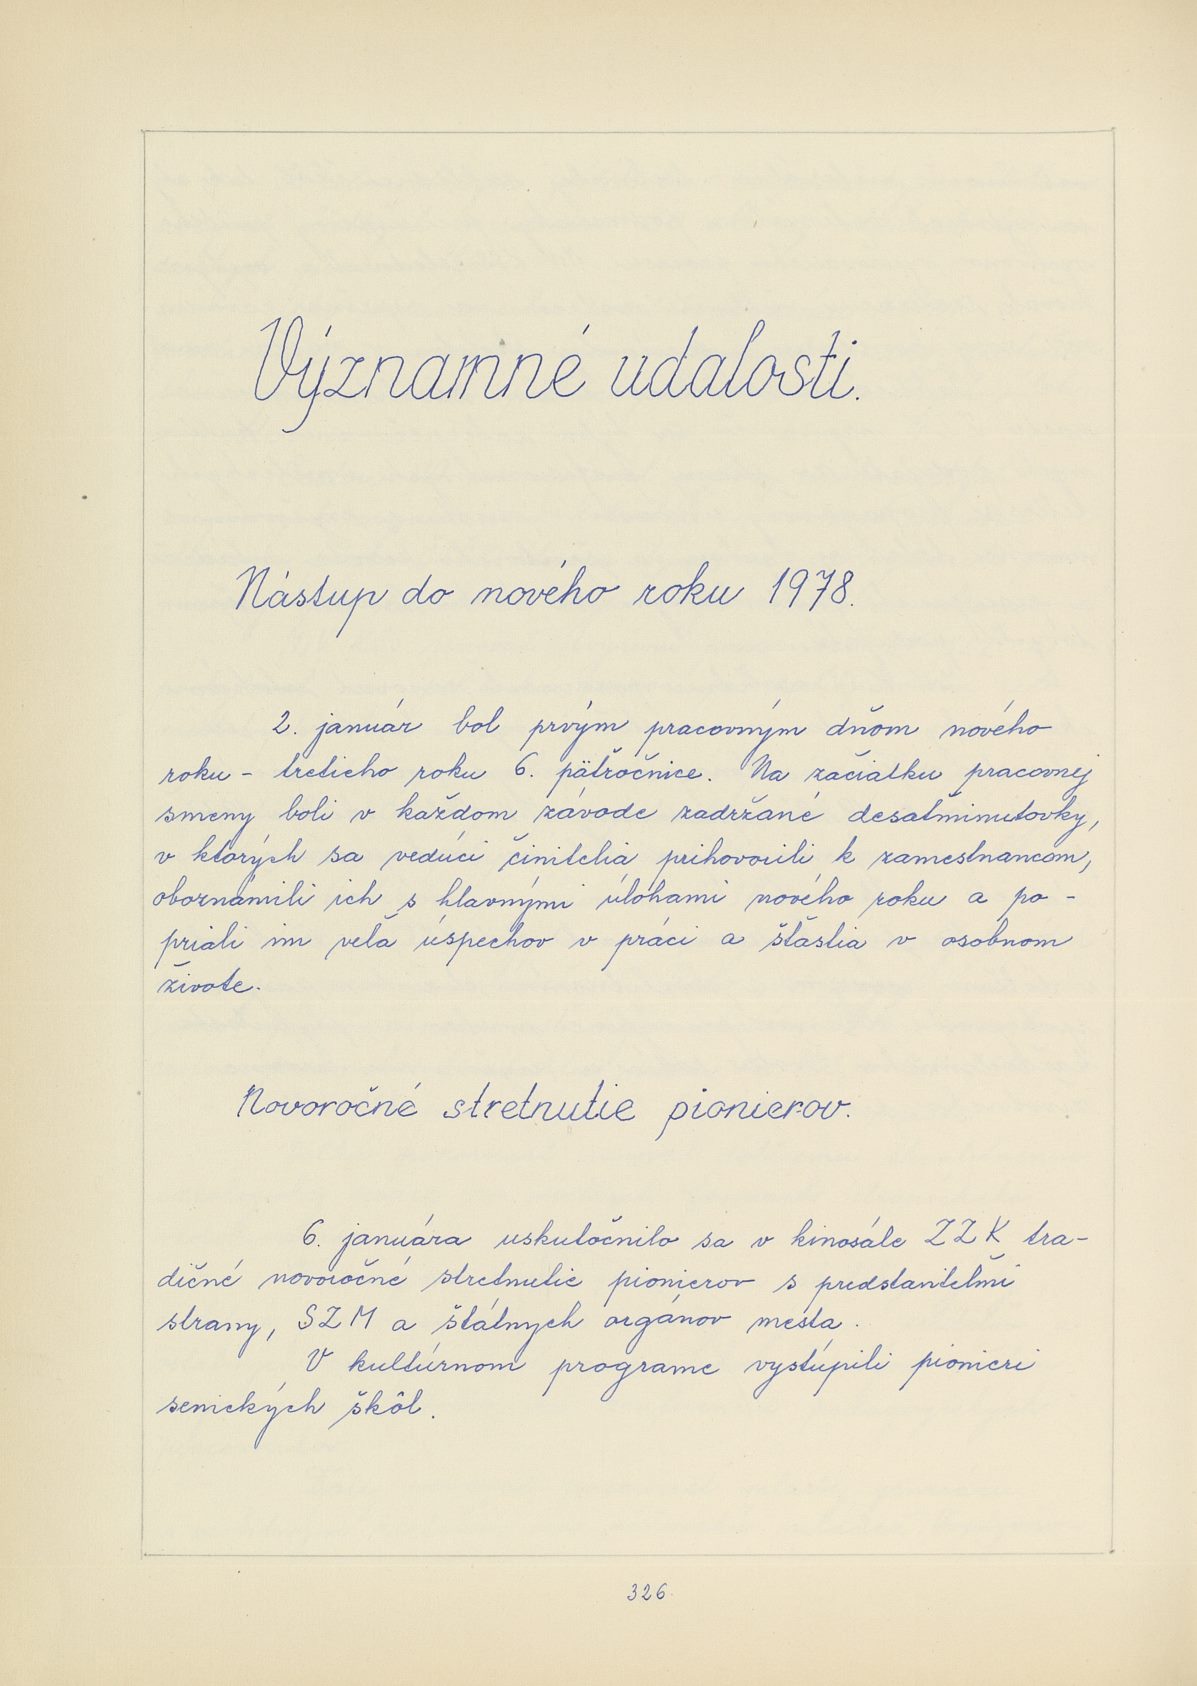 Významné udalosti.
Nástup do nového roku 1978.
2. január bol prvým pracovným dňom nového
roku - tretieho roku 6. päťročnice. Na začiatku pracovnej
smeny boli v každom závode zadržané desaťminutovky,
v ktorých sa vedúci činitelia prihovorili k zamestnancom,
oboznámili ich s hlavnými úlohami nového roku a po-
priali im veľa úspechov v práci a šťastia v osobnom
živote.
Novoročné stretnutie pionierov.
6. januára uskutočnilo sa v kinosále ZZK tra-
dičné novoročné stretnutie pionierov s predstaviteľmi
strany, SZM a štátnych orgánov mesta.
V kultúrnom programe vystúpili pionieri
senických škôl.
326